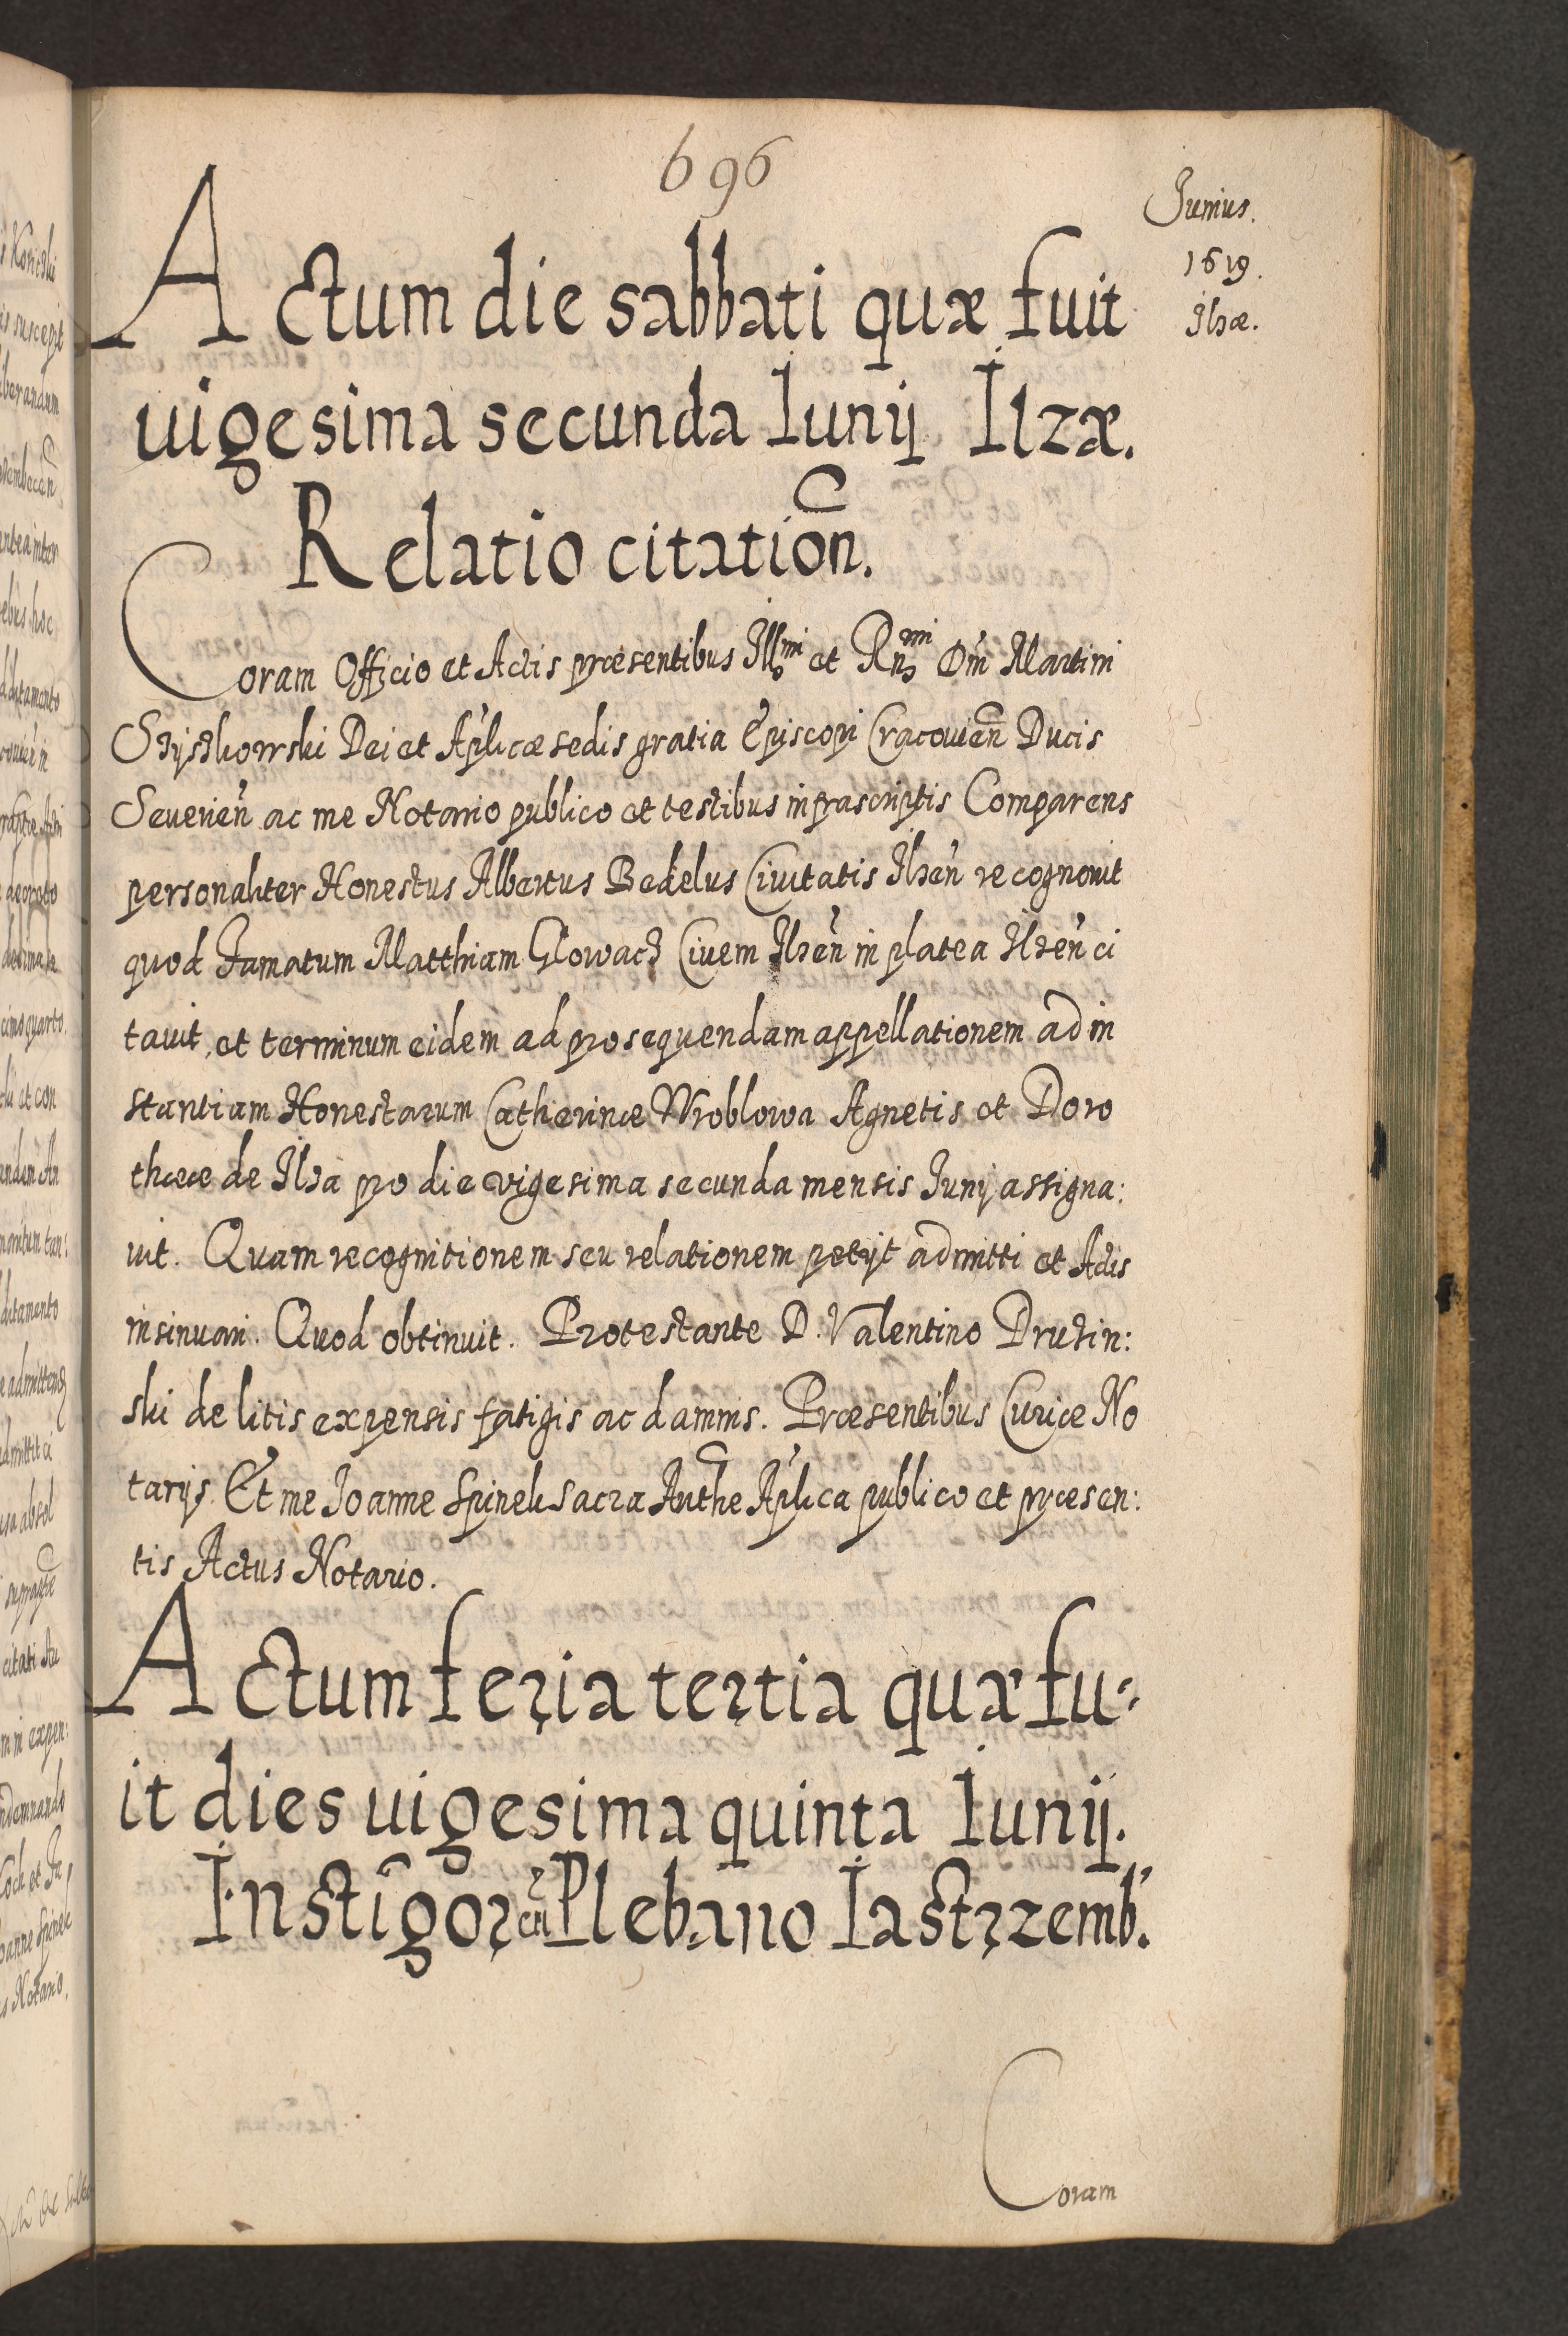 696
Junius.
1619.
Ilzæ.
Actum die sabbati quæ fuit
uigesima secunda Iunij Ilzæ.
Relatio citatioñ.
Coram Officio et Actis præsentibus Illmi et Rndmi Dni Martini
Szyszkowski Dei et Aplicæ sedis gratia Episcopi Cracouień Ducis
Seuerień ac me Notario publico et testibus infrascriptis Comparens
personaliter Honestus Albertus Bedelus Ciuitatis Ilzeń recognouit
quod Famatum Matthiam Glowacz Ciuem Ilzeń in platea Ilzeń ci
tauit, et terminum eidem ad prosequendam appellationem ad in
stantiam Honestarum Catherinæ Wroblowa Agnetis et Doro
thææ de Ilza pro die vigesima secunda mensis Junij assigna:
uit. Quam recognitionem seu relationem petijt admitti et Actis
insinuari. Quod obtinuit. Protestante D. Valentino Druzin:
ski de litis expensis fatigis ac damnis. Præsentibus Curiæ No
tarijs. Et me Joanne Spinek sacra Authe Aplica publico et præsen:
tis Actus Notario.
Actum feria tertia quæ fu:
it dies uigesima quinta Iunij.
Instigor cū Plebano Iastrzemb.
Coram